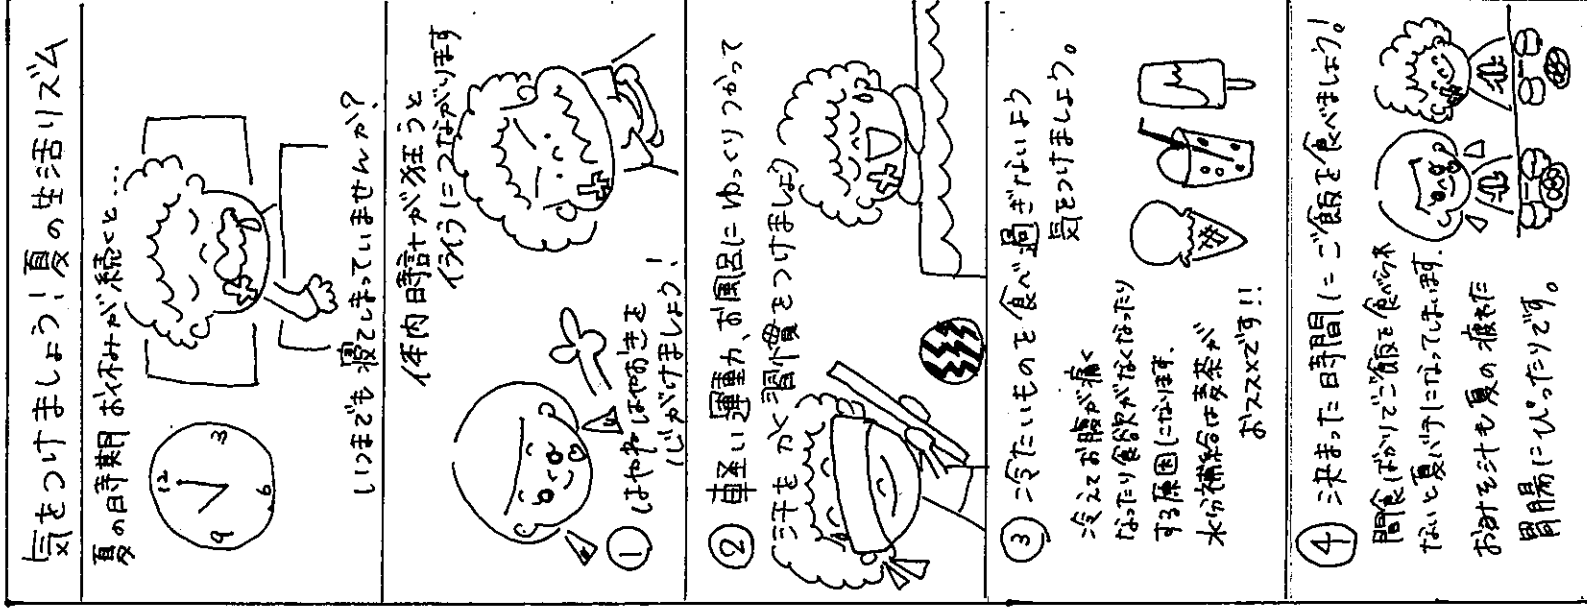 気をつけましょう!夏の生活リズム
夏の時期お休みが続くと...
12
3
6
9
いつまでも寝てしまっていませんか?
体内時計が狂うと
イライラにつながります
① はやねはやおきを
心がけましょう!
② 軽い運動、お風呂にゆっくりつかって
汗をかく習慣をつけましょう
③ 冷たいものを食べ過ぎないよう
気をつけましょう。
冷えてお腹が痛く
なったり食欲がなくなったり
する原因になります。
水分補給は麦茶が
おススメです!!
④ 決まった時間にご飯を食べましょう!
間食ばかりでご飯を食べられ
ないと夏バテになってしまいます。
おみそ汁も夏の疲れた
胃腸にぴったりです。